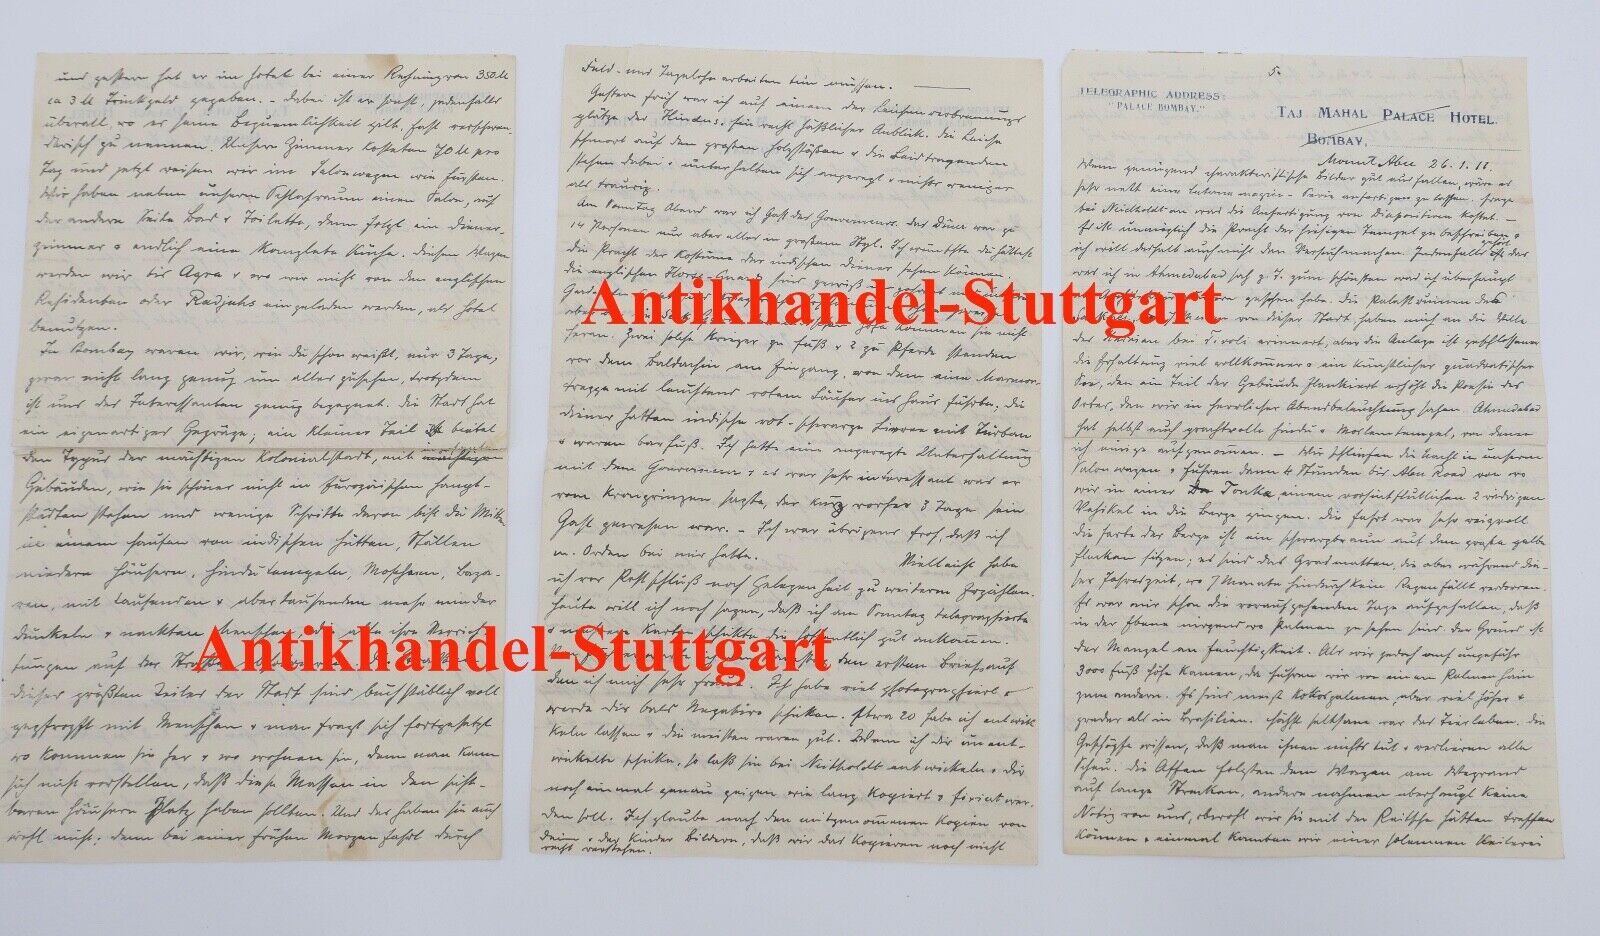 und gestern hat er im Hotel bei einer Rechnung von 350 M
ca 3 M Trinkgeld gegeben. – Dabei ist er sonst, jedenfalls
überall, wo es seine Bequemlichkeit gilt, fast verschwen-
derisch zu nennen. Unsere Zimmer kosteten 70 M pro
Tag und jetzt reisen wir im Salonwagen wie Fürsten.
Wir haben neben unserem Schlafraum einen Salon, auf
der anderen Seite Bad & Toilette, dann folgt ein Diener-
zimmer & endlich eine komplete Küche. Diesen Wagen
werden wir bis Agra & wo wir nicht von den englischen
Residenten oder Radjahs eingeladen werden, als Hotel
benutzen.
In Bombay waren wir, wie Du schon weißt, nur 3 Tage,
zwar nicht lang genug um alles zu sehen, trotzdem
ist uns des Interessanten genug begegnet. Die Stadt hat
ein eigenartiges Gepräge; ein kleiner Teil
den Typus der mächtigen Kolonialstadt, mit
Gebäuden, wie sie schöner nicht in Europäischen Haupt-
städten stehen und wenige Schritte davon bist Du mitten
in einem Haufen von indischen Hütten, Ställen
niederen Häusern, Hindutempeln, Moscheen, Baza-
ren, mit tausenden & abertausenden mehr minder
dunkeln & nackten Menschen, die alle ihre Verrich-
tungen auf der Straße
dieser größten Teiles der Stadt sind buchstäblich voll
gepfropft mit Menschen & man fragt sich fortgesetzt
wo kommen sie her & wo wohnen sie, denn man kann
sich nicht vorstellen, daß diese Massen in den sicht-
baren Häusern Platz haben sollten. Und das haben sie auch
wohl nicht; denn bei einer frühen Morgenfahrt durch
Feld- und Tagelohnarbeiten tun müssen.
Gestern früh war ich auf einem der Leichenverbrennungs
plätze der Hindus. Ein recht häßlicher Anblick. Die Leiche
schmort auf dem großen Holzstößen & die Leidtragenden
stehen dabei & unterhalten sich angeregt & nichts weniger
als traurig.
Am Sonntag Abend war ich Gast des Gouverneurs. Das Diner war zu
14 Personen nur aber alles in großem Styl. Ich wünschte Du hättest
die Pracht der Kostüme der indischen Diener sehen können.
die englischen Horse-Guards sind gewiß
Antikhandel-Stuttgart
Zwei solche Krieger zu Fuß & 2 zu Pferde standen
vor dem Baldachin am Eingang, von dem eine Marmor-
treppe mit leuchtend rotem Läufer ins Haus führte, die
Diener hatten indische rot-schwarze Livree mit Turban
& waren barfuß. Ich hatte eine angeregte Unterhaltung
mit dem Gouverneur & es war sehr interessant was er
vom Kronprinzen sagte, der kurz vorher 3 Tage sein
Gast gewesen war. – Ich war übrigens froh, daß ich
m. Orden bei mir hatte. Vielleicht habe
ich vor Postschluß noch Gelegenheit zu weiteren Erzählen.
Heute will ich noch sagen, daß ich am Sonntag telegraphierte
& mehrere Karten schickte die hoffentlich gut ankommen.
den ersten Brief, auf
den ich mich sehr freue. Ich habe viel photographiert &
werde Dir bald Negative schicken. Etwa 20 habe ich entwik
keln lassen & die meisten waren gut. Wenn ich Dir unent-
wickelte schicke, so laß sie bei Nietholdt entwickeln & Dir
noch einmal genau zeigen, wie lang kopiert & fixiert wer-
den soll. Ich glaube nach den mitgenommenen Kopien von
Deinen & der Kinder Bildern, daß wir das Kopieren noch nicht
recht verstehen.
Antikhandel-Stuttgart
5.
TELEGRAPHIC ADDRESS:
"PALACE BOMBAY."
TAJ MAHAL PALACE HOTEL.
BOMBAY.
Mount Abu 26.1.11.
Wenn genügend charakteristische Bilder gut ausfallen, wäre es
sehr nett eine Laterna magica-Serie anfertigen zu lassen. Frage
bei Nietholdt an was die Anfertigung von Diapositiven kostet. –
Es ist unmöglich die Pracht der hiesigen Tempel zu beschreiben &
ich will deshalb auch nicht den Versuch machen. Jedenfalls gehört das
was ich in Ahmedabad sah z. T. zum schönsten was ich überhaupt
gesehen habe. Die Palastruinen des
von dieser Stadt, haben mich an die Villa
des Hadrian bei Tivoli erinnert, aber die Anlage ist geschlossener
die Erhaltung viel vollkommener & ein künstlicher quadratischer
See, den ein Teil der Gebäude flankiert erhöht die Poesie des
Ortes, den wir in herrlicher Abendbeleuchtung sahen. Ahmedabad
hat selbst auch prachtvolle Hindu & Moslemtempel, von denen
ich einige aufgenommen. – Wir schliefen die Nacht in unserem
Salonwagen & fuhren dann 4 Stunden bis Abu Road von wo
wir in einer Tonka, einem vorsintflutlichen 2 rädrigen
Vehikel in die Berge gingen. Die Fahrt war sehr reizvoll
die Farbe der Berge ist ein schwarzbraun auf dem große gelbe
Flecken sitzen; es sind das Grasmatten, die aber während die-
ser Jahreszeit, wo 7 Monate hindurch kein Regen fällt verdorren.
Es war mir schon die vorausgehenden Tage aufgefallen, daß
in der Ebene nirgend wo Palmen zu sehen sind. Der Grund ist
der Mangel an Feuchtigkeit. Als wir jedoch auf ungefähr
3000 Fuß Höhe kamen, da fuhren wir von einem Palmenhain
zum andern. Es sind meist Kokospalmen, aber viel höher &
grader als in Brasilien. Höchst seltsam war das Tierleben. Die
Geschöpfe wissen, daß man ihnen nichts tut & verlieren alle
Scheu. Die Affen folgten dem Wagen am Wegrand
auf lange Strecken, andere nahmen überhaupt keine
Notiz von uns, obwohl wir sie mit der Peitsche hätten treffen
können & einmal kamen wir einer solennen Keilerei